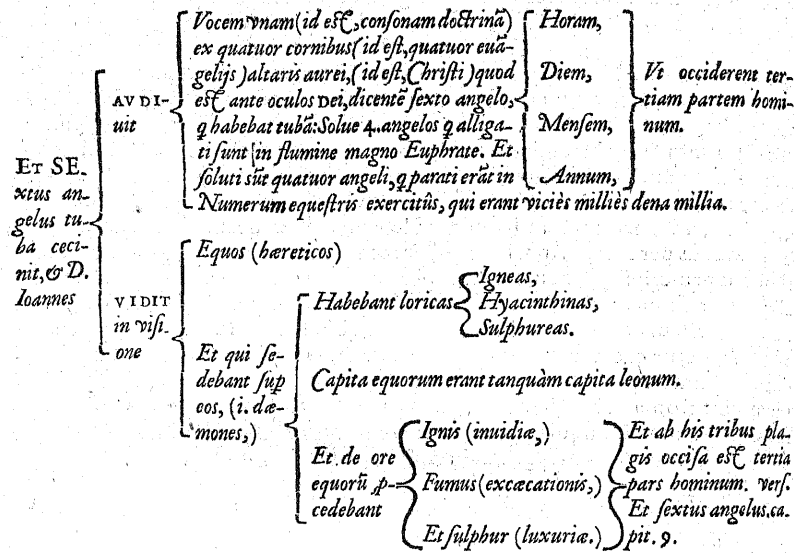 ET SE-
xtus an-
gelus tu-
ba ceci-
nit, & D.
Ioannes
AVDI-
uit
Vocem vnam (id est, consonam doctrinā)
ex quatuor cornibus (id est, quatuor euā-
gelijs) altaris aurei, (id est, Christi) quod
est ante oculos Dei, dicentē sexto angelo,
q habebat tubā: Solue 4. angelos q alliga-
ti sunt in flumine magno Euphrate. Et
soluti sūt quatuor angeli, q parati erāt in
Horam,
Diem,
Mensem,
Annum,
Vt occiderent ter-
tiam partem homi-
num.
Numerum equestris exercitûs, qui erant viciès milliès dena millia.
VIDIT
in visi-
one
Equos (hæreticos)
Et qui se-
debant sup
eos, (i. dæ-
mones,)
Habebant loricas
Igneas,
Hyacinthinas,
Sulphureas.
Capita equorum erant tanquàm capita leonum.
Et de ore
equorū p-
cedebant
Ignis (inuidiæ,)
Fumus (excæcationis,)
Et sulphur (luxuriæ.)
Et ab his tribus pla-
gis occisa est tertia
pars hominum. vers.
Et sextus angelus. ca-
pit. 9.